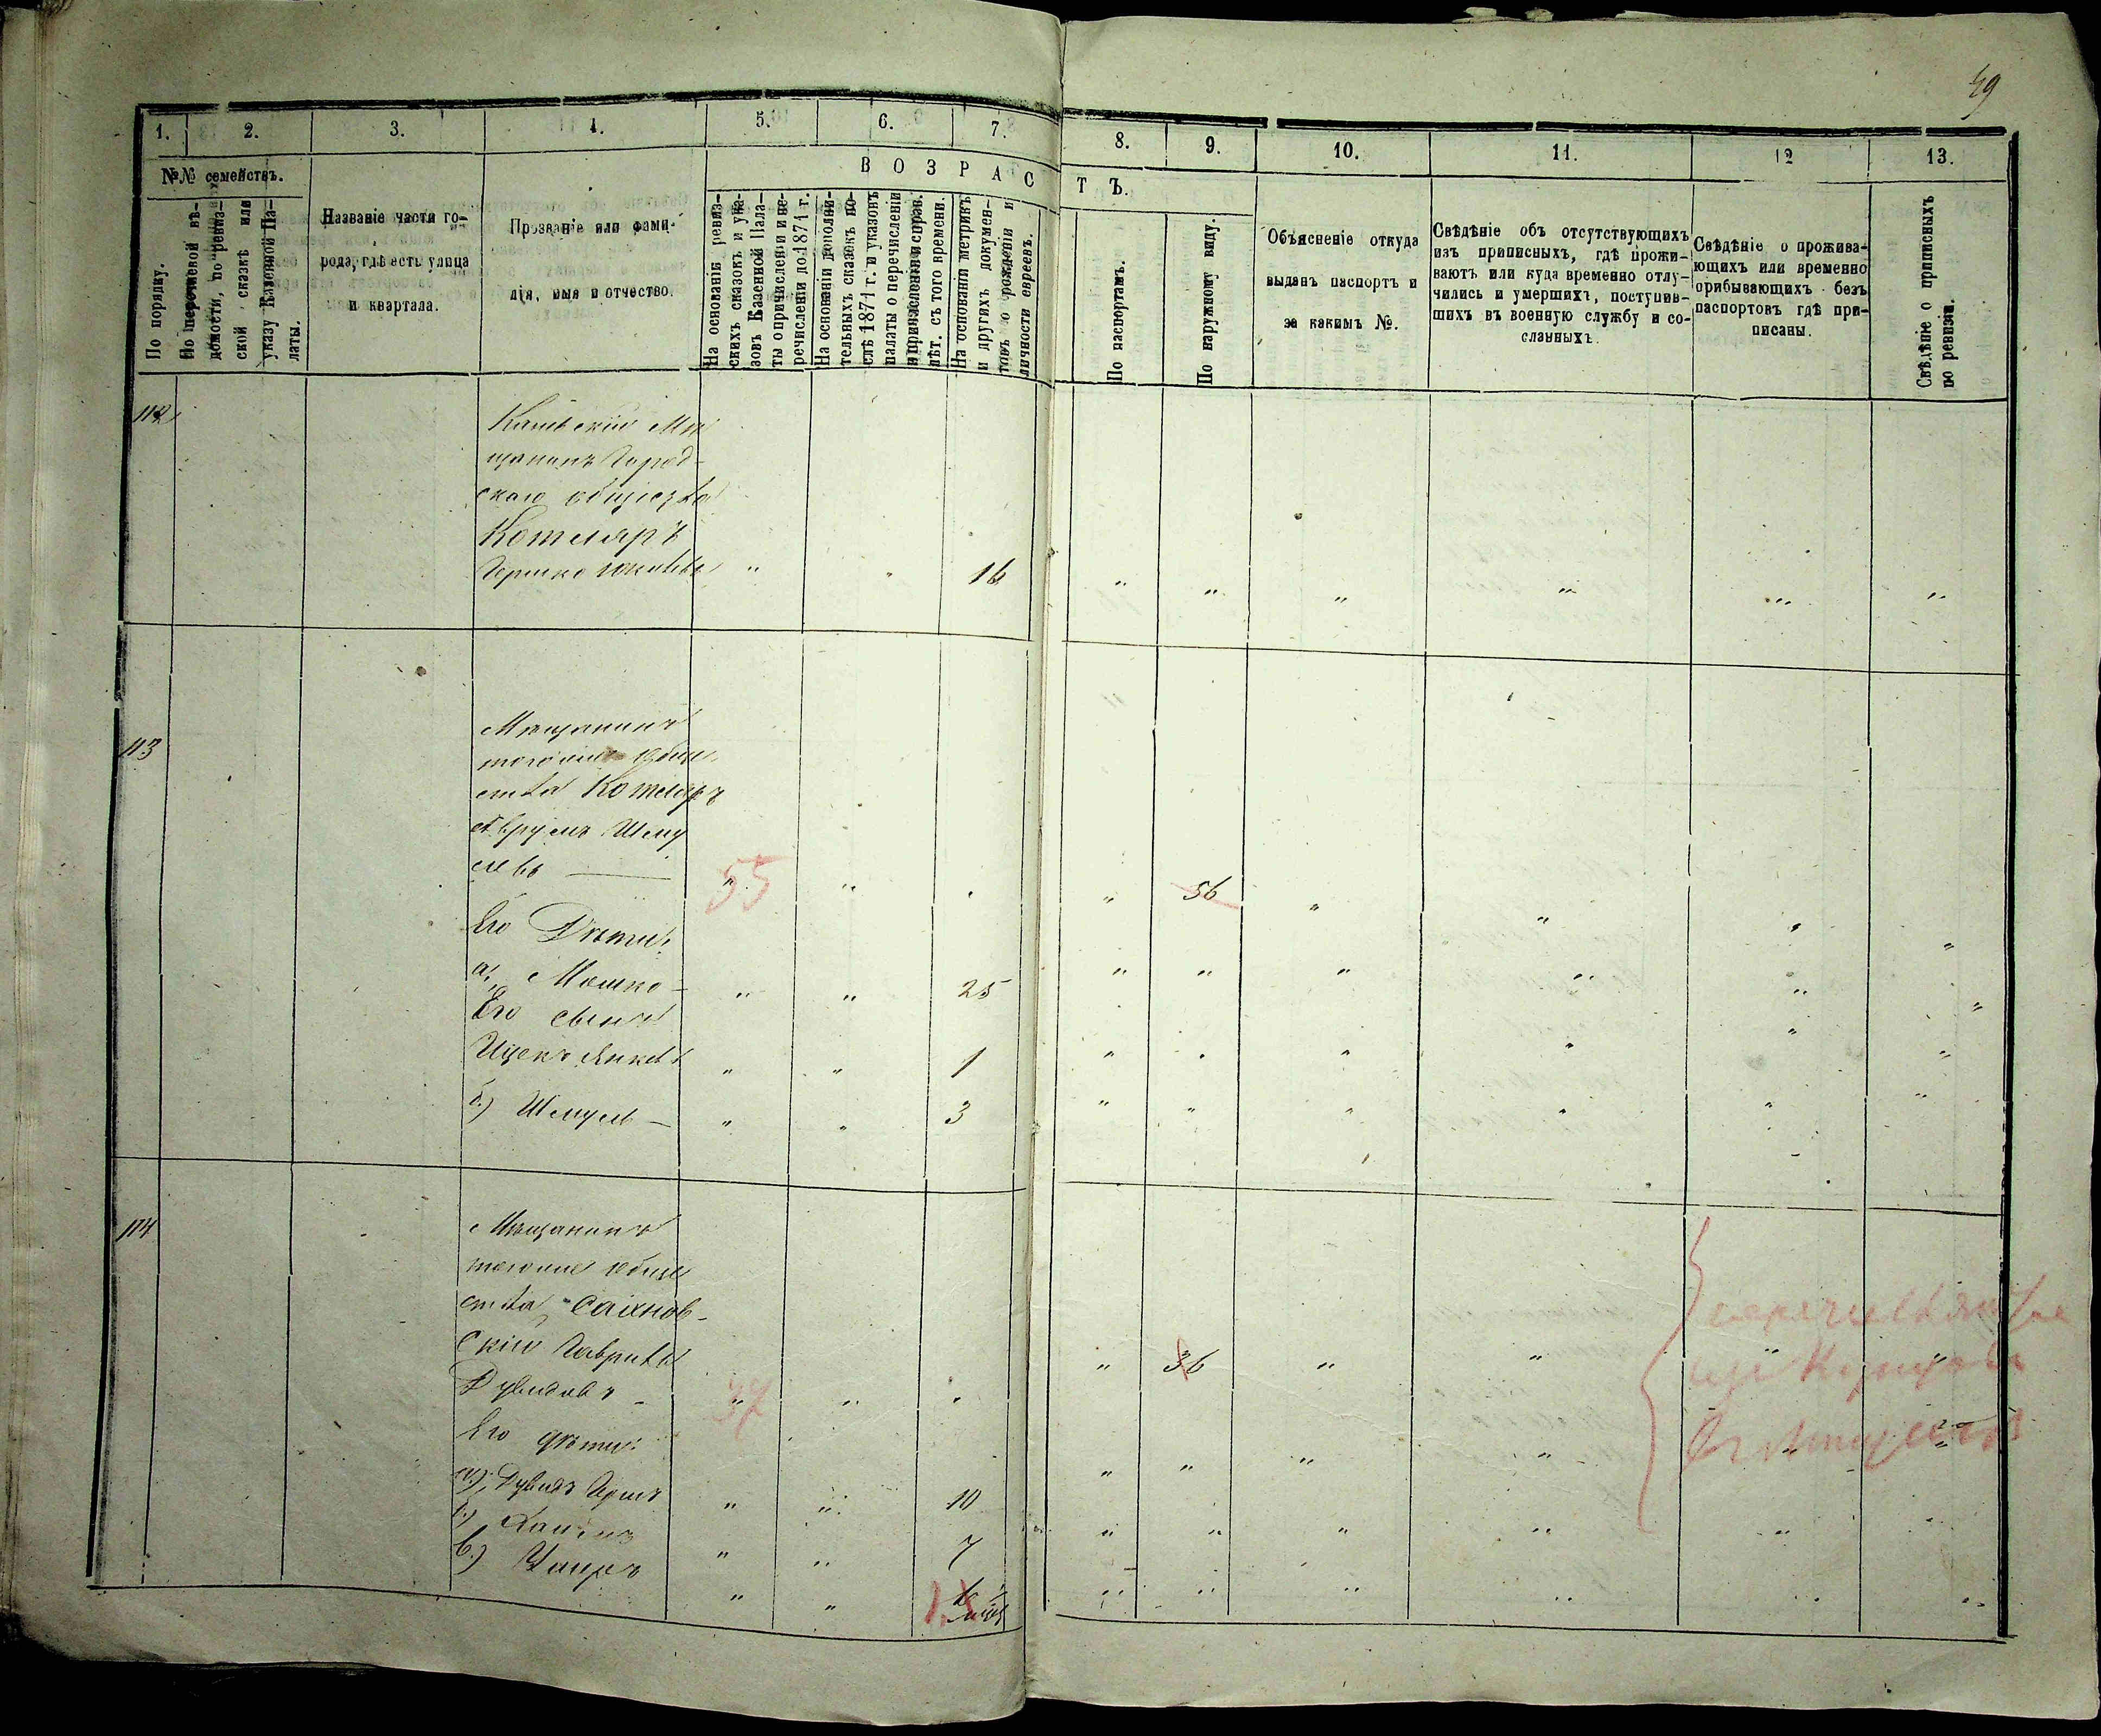 49
1. 2. 3. 4. 5. 6. 7. 8. 9. 10. 11. 12 13.
№№ семействъ.
В О З Р А С Т Ъ.
По порядку.
По перечневой вѣ-
домости, по ревиз-
ской сказкѣ или
указу Казенной Па-
латы.
Названіе части го-
рода, гдѣ есть улица
и квартала.
Прозваніе или фами-
лія, имя и отчество.
На основаніи ревиз-
скихъ сказокъ и ука-
зовъ Казенной Пала-
ты о причисленіи и пе-
речисленіи до 1871 г.
На основаніи дополни-
тельныхъ сказокъ по-
слѣ 1871 г. и указовъ
палаты о перечисленіи
и причисленіи и справ.
лѣт. съ того времени.
На основаніи метрикъ
и другихъ докумен-
товъ о рожденіи и
личности евреевъ.
По паспортамъ.
По наружному виду.
Объясненіе откуда
выданъ паспортъ и
за какимъ №.
Свѣдѣніе объ отсутствующихъ
изъ приписныхъ, гдѣ прожи-
ваютъ или куда временно отлу-
чились и умершихъ, поступив-
шихъ въ военную службу и со-
сланныхъ.
Свѣдѣніе о прожива-
ющихъ или временно
прибывающихъ безъ
паспортовъ гдѣ при-
писаны.
Свѣдѣніе о приписныхъ
по ревизіи.
112
Каневскій Мѣ
щанинъ Город-
скаго общества
Котляръ
Гершко 16
113
Мѣщанинъ
тогоже обще
ства Котляръ
Аврумъ Шму
левъ 55 56
Его Дѣти:
а, Мошко - 25
Его сынъ
Ицекъ Янкевъ 1
б) Шмуль - 3
114
Мѣщанинъ
тогоже обще
ства Сахнов-
скій Гаврило 36
Дувидовъ - 37
Его дѣти:
а) Дувидъ Герш 10
б) Хаимъ 7
в)